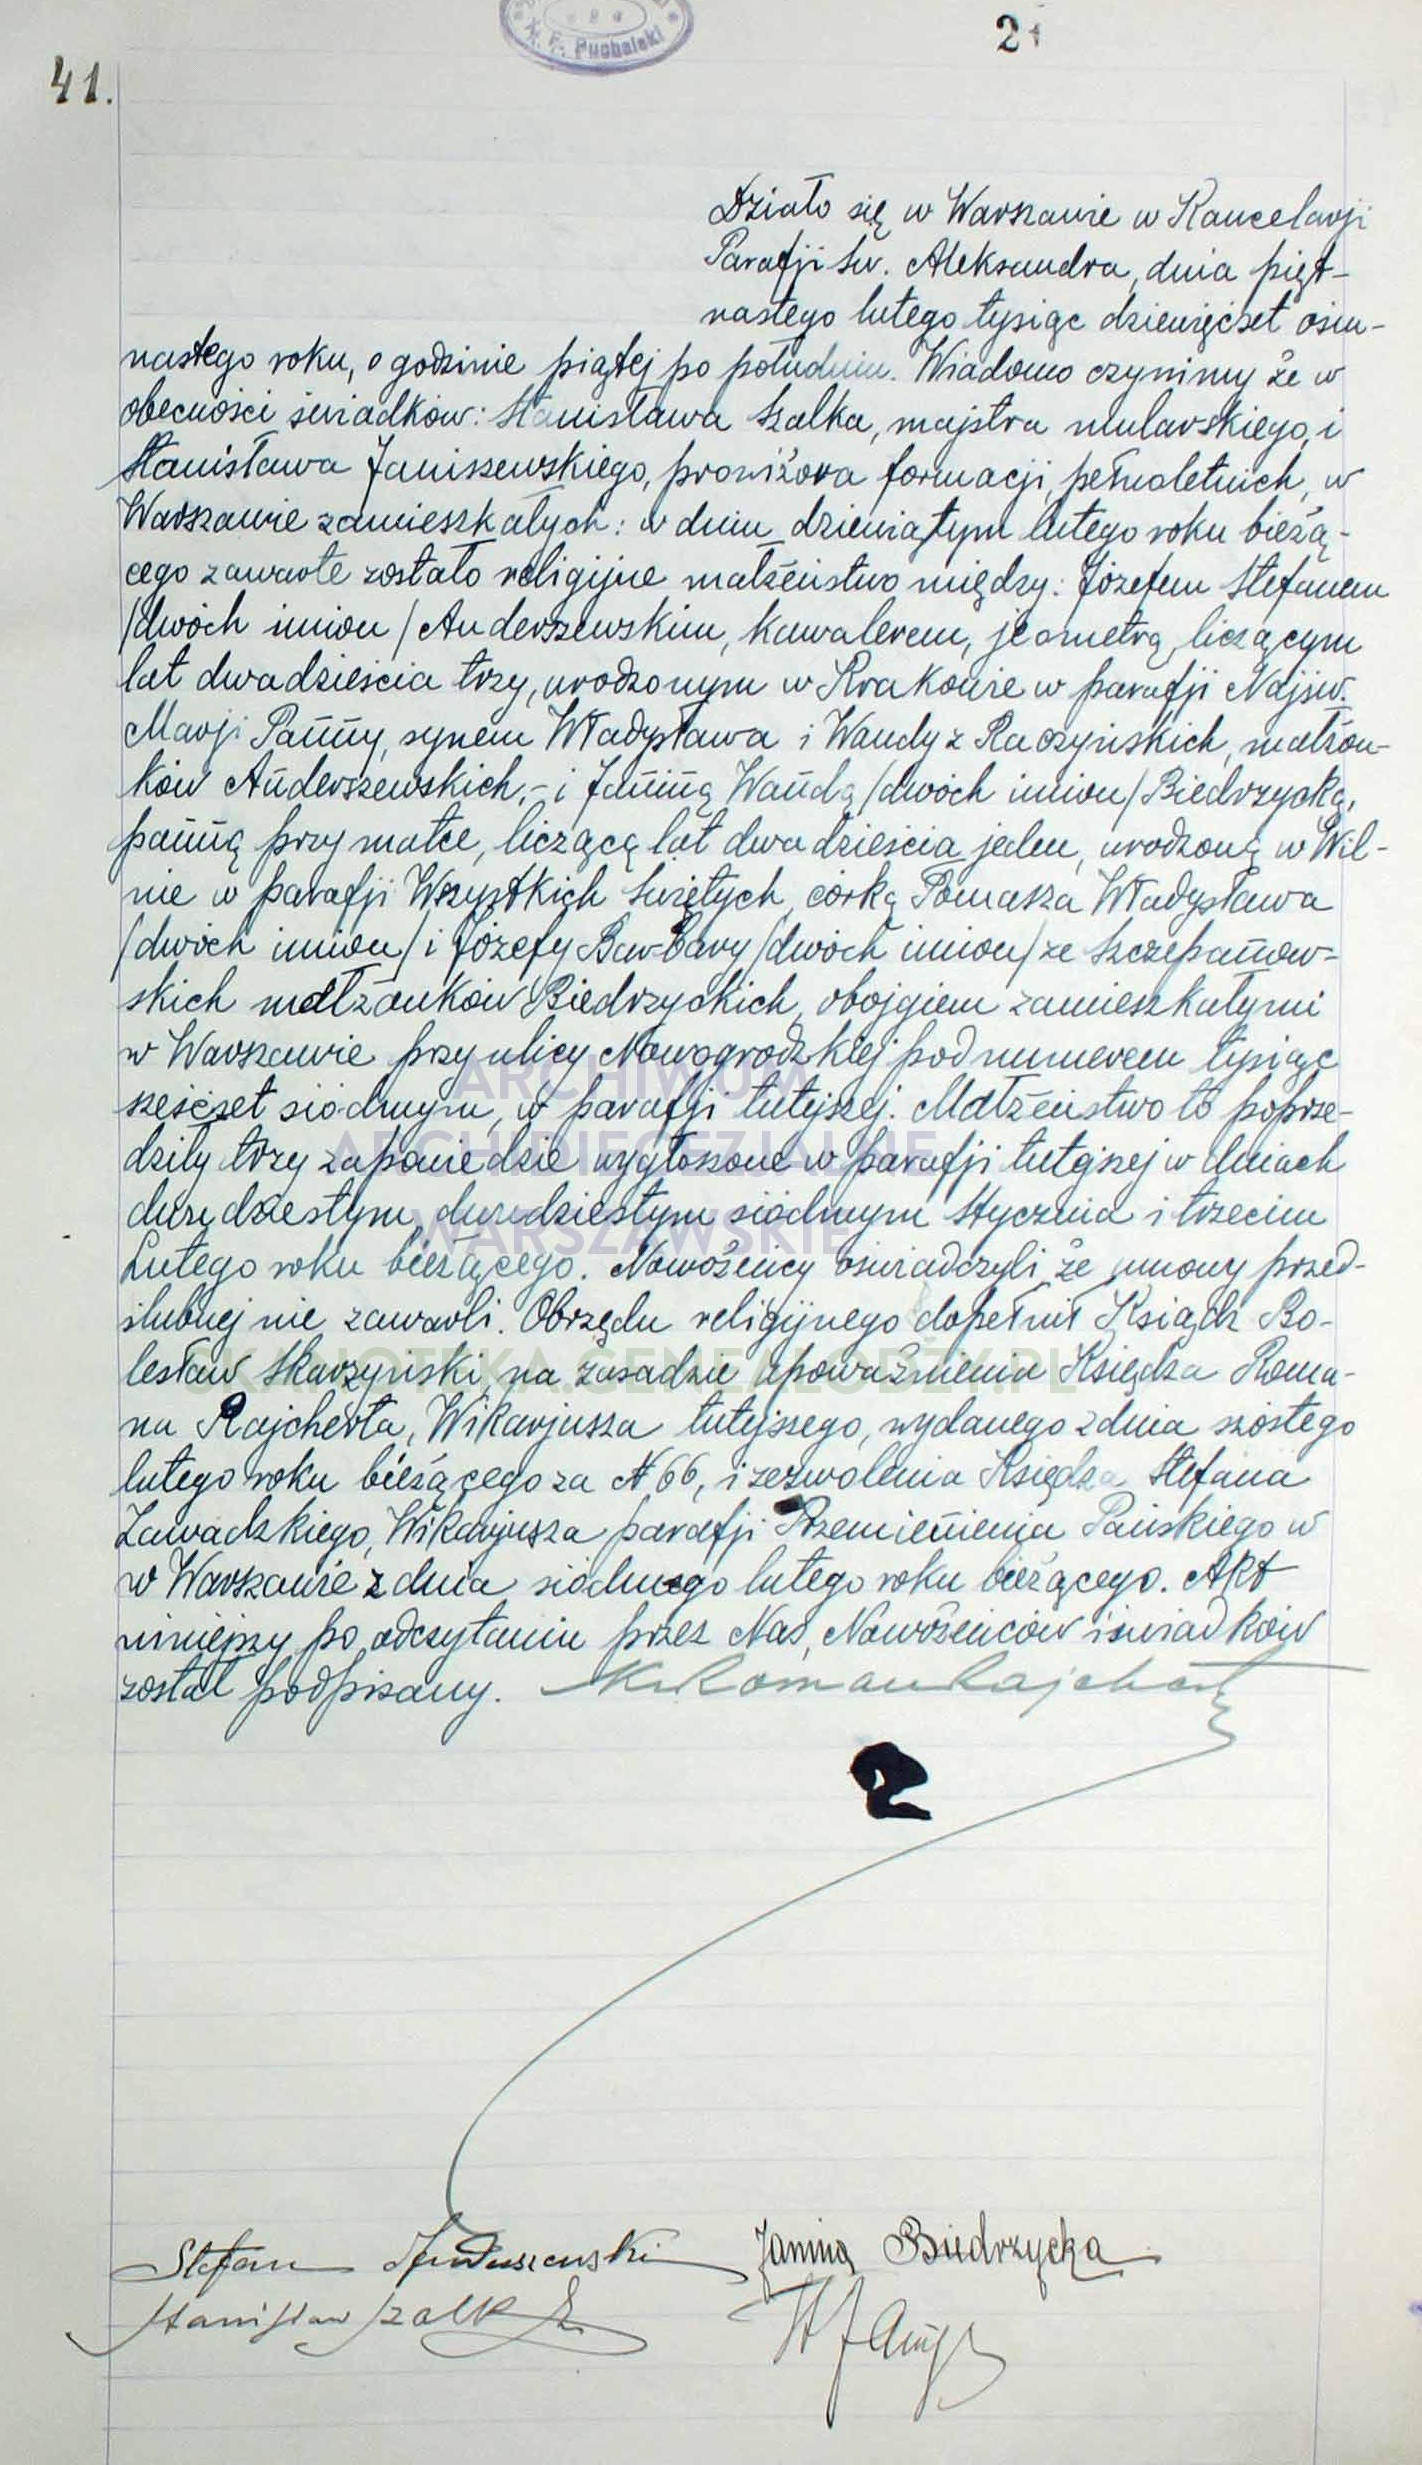 K. F. Puchalski
21
41.
Działo się w Warszawie w Kancelarji
Parafji Św. Aleksandra, dnia pięt-
nastego lutego tysiąc dziewięćset osiem-
nastego roku, o godzinie piątej po południu. Wiadomo czynimy że w
obecności świadków: Stanisława Szalka, majstra mularskiego, i
Stanisława Janiszewskiego, prowizora formacji, pełnoletnich, w
Warszawie zamieszkałych: w dniu dziewiątym lutego roku bieżą-
cego zawarte zostało religijne małżeństwo między: Józefem Stefanem
/dwóch imion/ Anderszewskim, kawalerem, jeometrą, liczącym
lat dwadzieścia trzy, urodzonym w Krakowie w parafji Najśw.
Marji Panny, synem Władysława i Wandy z Raczyńskich, małżon-
ków Anderszewskich, - i Janiną Wandą /dwóch imion/ Biedrzycką,
panną przy matce, liczącą lat dwadzieścia jeden, urodzoną w Wil-
nie w parafji Wszystkich Świętych, córką Tomasza Władysława
/dwóch imion/ i Józefy Barbary /dwóch imion/ ze Szczepanow-
skich małżonków Biedrzyckich, obojgiem zamieszkałymi
w Warszawie przy ulicy Nowogrodzkiej pod numerem tysiąc
sześćset siódmym, w parafji tutejszej. Małżeństwo to poprze-
dziły trzy zapowiedzie wygłoszone w parafji tutejszej w dniach
dwudziestym, dwudziestym siódmym stycznia i trzecim
Lutego roku bieżącego. Nowożeńcy oświadczyli, że umowy przed-
ślubnej nie zawarli. Obrzędu religijnego dopełnił Ksiądz Bo-
lesław Skarzyński, na zasadzie upoważnienia Księdza Roma-
na Rajcherta, Wikarjusza tutejszego, wydanego z dnia szóstego
lutego roku bieżącego za N 66, i zezwolenia Księdza Stefana
Zawadzkiego, Wikarjusza parafji Przemienienia Pańskiego w
w Warszawie z dnia siódmego lutego roku bieżącego. Akt
niniejszy po odczytaniu przez Nas, Nowożeńców i świadków
został podpisany. X. Roman Rajchert
2
Stefan Anderszewski Janina Biedrzycka
Stanisław Szalk
ARCHIWUM
ARCHIDIECEZJALNE
WARSZAWSKIE
SKANOTEKA.GENEALODZY.PL